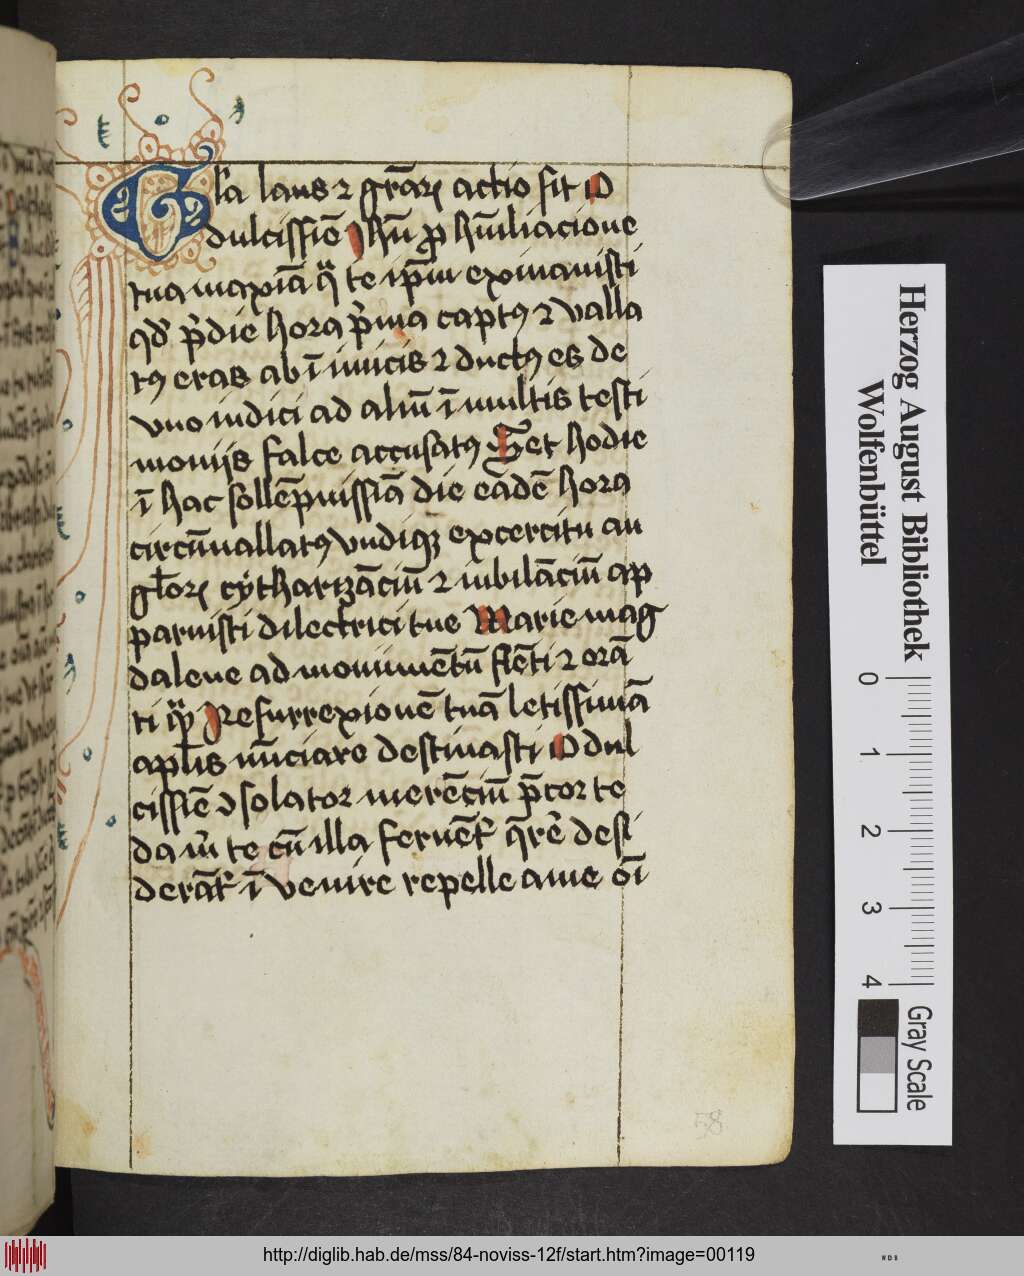 Gl̄a laus ⁊ gr̄aꝝ actio sit O
dulcissīe Ihū ꝓ hūiliacione
tua maxīa q̄ te ip̄m exinanisti
qd' p̄die hora p̄ma captꝰ ⁊ valla
tꝰ eras ab īimicis ⁊ ductꝰ es de
vno iudici ad aliū ī multis testi
monijs false accusatꝰ Set hodie
ī hac sollēpnissīa die eādē hora
circūuallatꝰ vndiqꝫ excercitu an
gl̄oꝝ cytharizāciū ⁊ iubilāciū ap
paruisti dilectrici tue Marie mag
dalene ad monumētū flēti ⁊ orā
ti Resurrexionē tuā letissimā
apl̄is nūciare destinasti O dul
cissīe ↄsolator merēciū p̄cor te
da m̄ te cū illa feruēt' q̄re desi
derāt' īvenire repelle a me oī
58
Herzog August Bibliothek
Wolfenbüttel
0 1 2 3 4
Gray Scale
http://diglib.hab.de/mss/84-noviss-12f/start.htm?image=00119